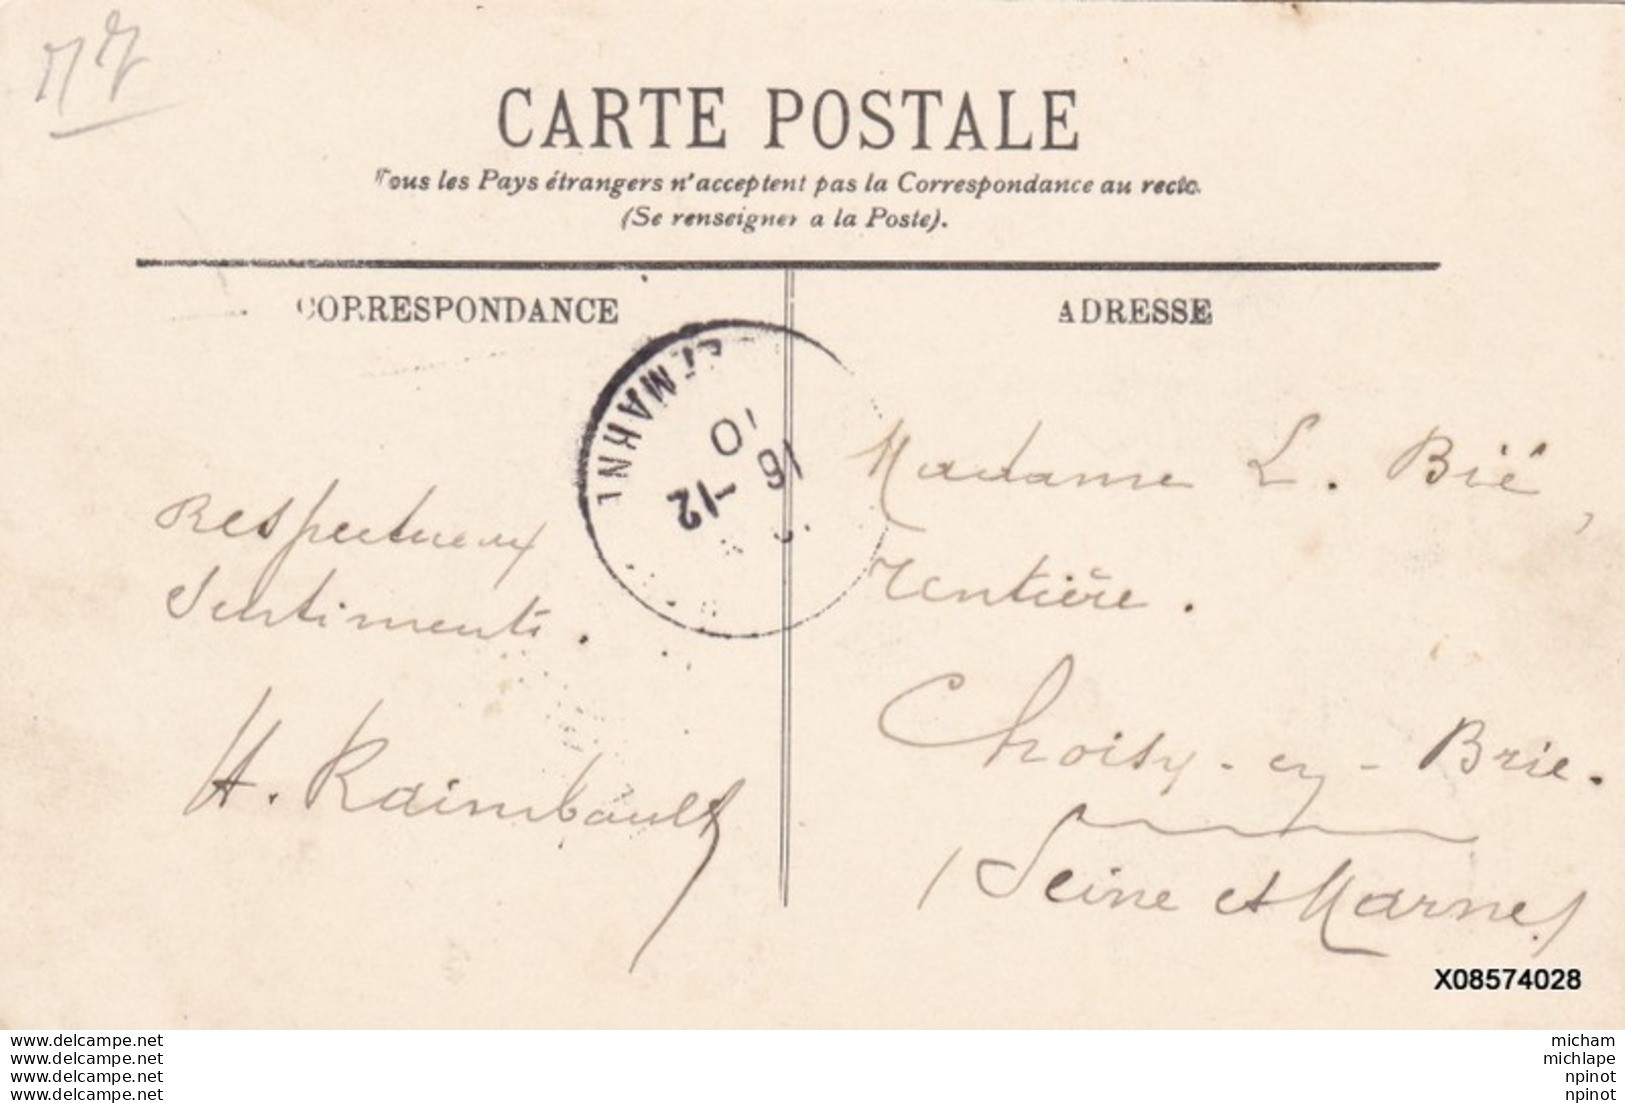 77
CARTE POSTALE
Tous les Pays étrangers n'acceptent pas la Correspondance au recto.
(Se renseigner a la Poste).
CORRESPONDANCE
ADRESSE
ET MARNE
10
16 -12
Respectueux
Sentiments.
H. Raimbault
Madame L. Bié,
rentière.
Choisy-en-Brie.
(Seine et Marne)
X08574028
www.delcampe.net
www.delcampe.net
www.delcampe.net
www.delcampe.net
micham
michlape
npinot
npinot